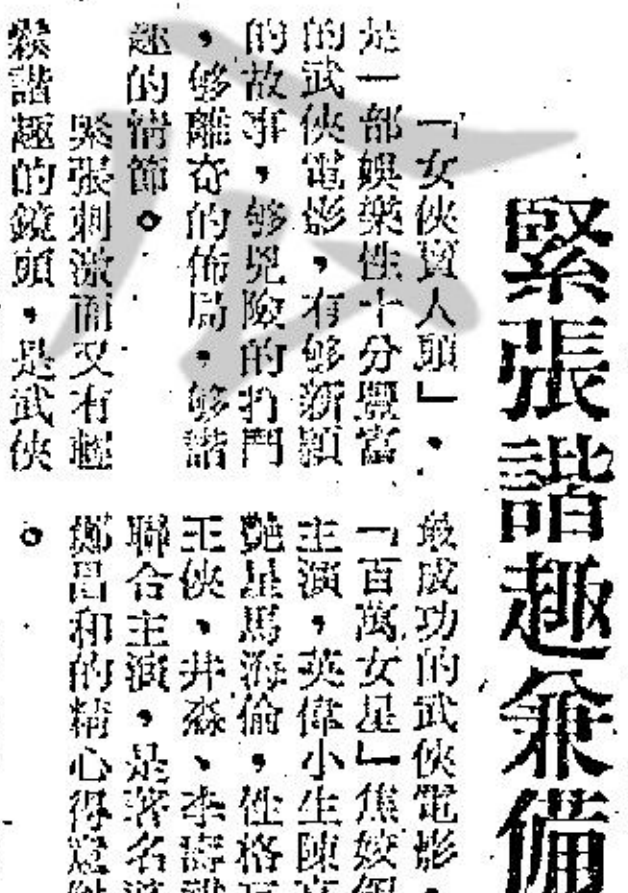 緊張諧趣兼備
「女俠賣人頭」,
是一部娛樂性十分豐富
的武俠電影,有够新穎
的故事,够兇險的打鬥
,够離奇的佈局,够諧
趣的情節。
緊張刺激而又有輕
鬆諧趣的鏡頭,是武俠
最成功的武俠電影,
「百萬女星」焦姣領
主演,英偉小生陳
艷星馬海倫,性格
王俠、井淼、李壽
聯合主演,是著名
鄭昌和的精心得意
。